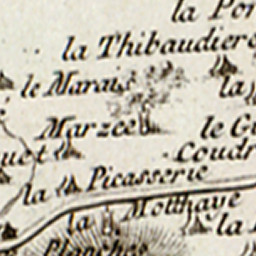 la Por
la Thibaudiere
le Marais
la
Marzee
le G
Coudr
uet
la Picasserie
la Motthaye
la
Planches